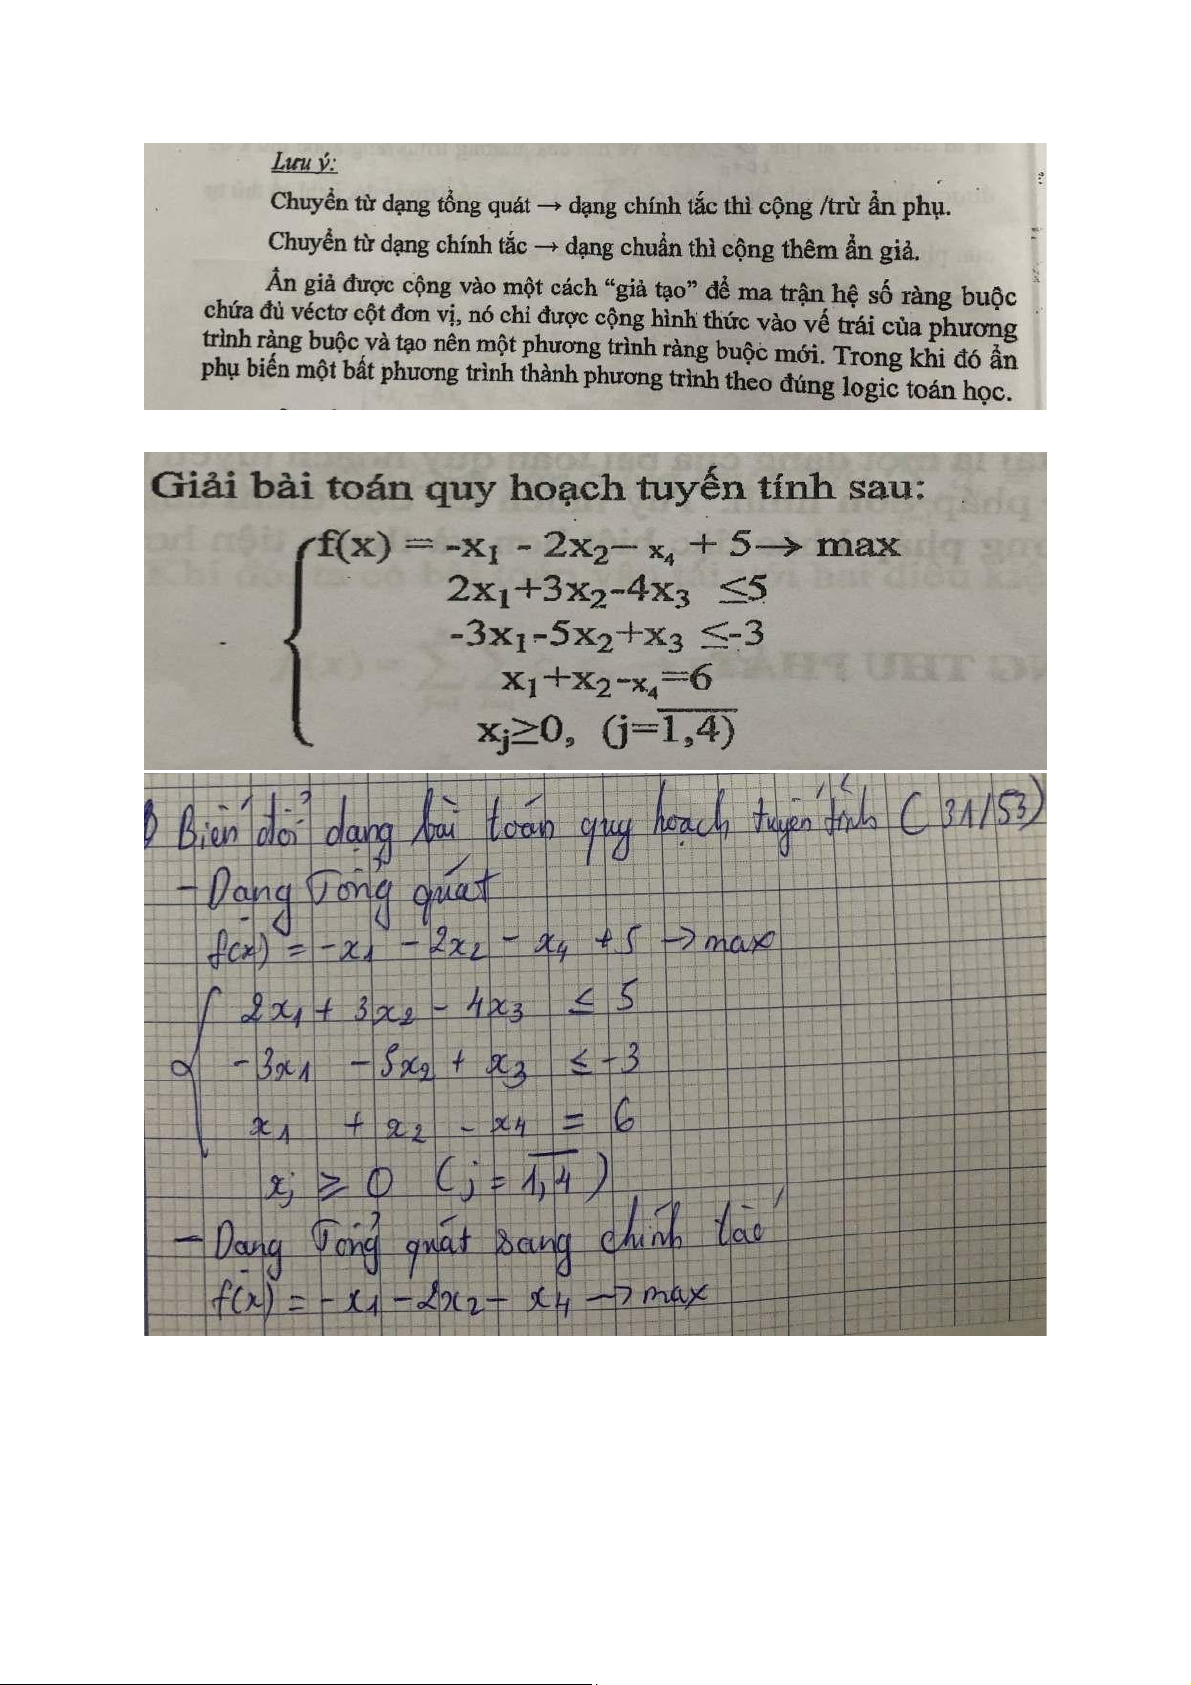 Lưu ý:
Chuyển từ dạng tổng quát → dạng chính tắc thì cộng /trừ ẩn phụ.
Chuyển từ dạng chính tắc → dạng chuẩn thì cộng thêm ẩn giả.
Ẩn giả được cộng vào một cách “giả tạo” để ma trận hệ số ràng buộc
chứa đủ véctơ cột đơn vị, nó chỉ được cộng hình thức vào vế trái của phương
trình ràng buộc và tạo nên một phương trình ràng buộc mới. Trong khi đó ẩn
phụ biến một bất phương trình thành phương trình theo đúng logic toán học.
Giải bài toán quy hoạch tuyến tính sau:
f(x) = -x₁ - 2x₂ – x₄ + 5 → max
2x₁+3x₂-4x₃ ≤5
-3x₁-5x₂+x₃ ≤-3
x₁+x₂-x₄=6
xⱼ≥0, (j=1,4)
Biến đổi dạng bài toán quy hoạch tuyến tính (31/53)
- Dạng Tổng quát
f(x) = -x₁ - 2x₂ - x₄ + 5 → max
2x₁ + 3x₂ - 4x₃ ≤ 5
-3x₁ - 5x₂ + x₃ ≤ -3
x₁ + x₂ - x₄ = 6
xⱼ ≥ 0 (j = 1,4)
- Dạng Tổng quát sang chính tắc
f(x) = -x₁ - 2x₂ - x₄ → max